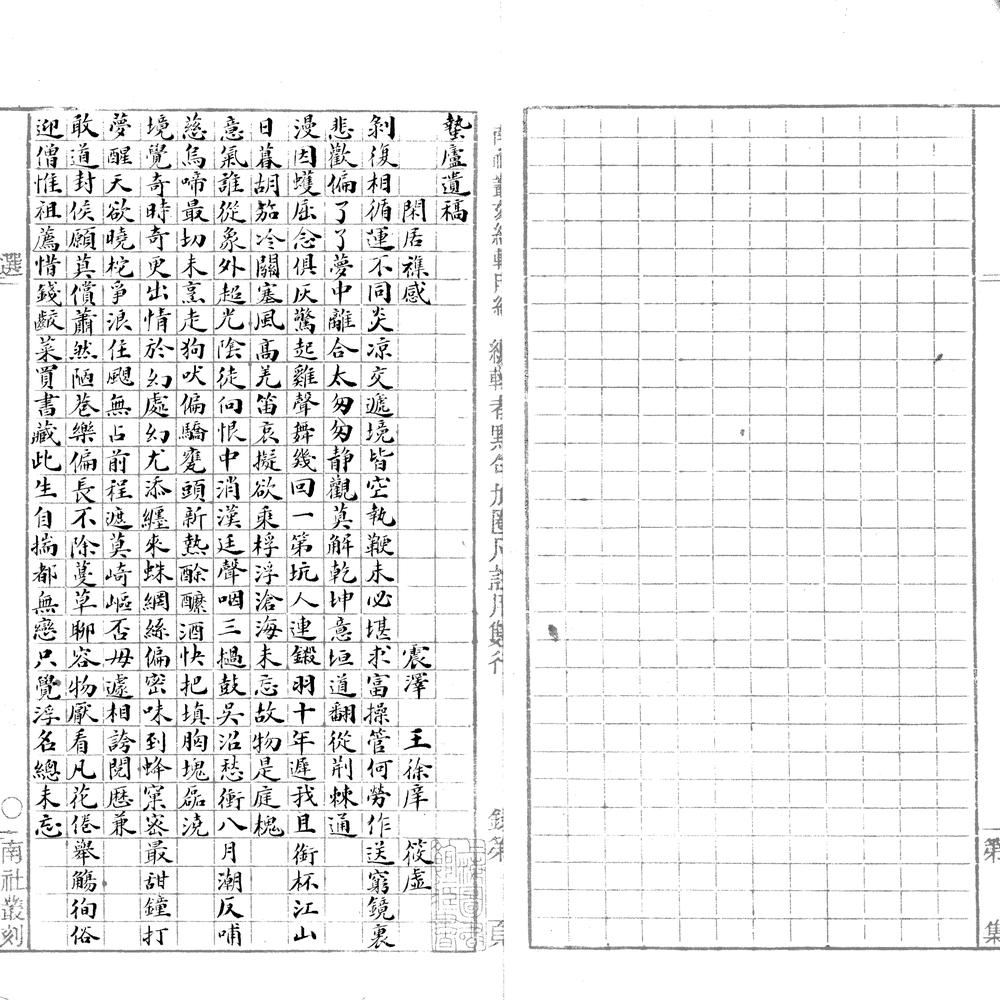 第　集
南社叢刻編輯用紙　編輯者點句加圈凡註用雙行　錄第　頁
蟄廬遺稿
閑居襍感　震澤　王徐庠　筱虛
剝復相循運不同炎凉交遞境皆空執鞭未必堪求富操管何勞作送窮鏡裏
悲歡偏了了夢中離合太匆匆靜觀莫解乾坤意垣道翻從荊棘通
漫因蠖屈念俱灰驚起雞聲舞幾回一第坑人連鎩羽十年遲我且銜杯江山
日暮胡笳冷關塞風高羌笛哀擬欲乘桴浮滄海未忘故物是庭槐
意氣誰從象外超光陰徒向恨中消漢廷聲咽三撾鼓吳沼愁衝八月潮反哺
慈烏啼最切未烹走狗吠偏驕甕頭新熟酴醾酒快把填胸塊磊澆
境覺奇時奇更出情於幻處幻尤添纏來蛛網絲偏密味到蜂窠蜜最甜鐘打
夢醒天欲曉柁爭浪住颶無占前程遮莫崎嶇否毋遽相誇閱歷兼
敢道封侯願莫償蕭然陋巷樂偏長不除蔓草聊容物厭看凡花倦舉觴徇俗
迎僧惟祖薦惜錢齩菜買書藏此生自揣都無戀只覺浮名總未忘
選　〇　南社叢刻